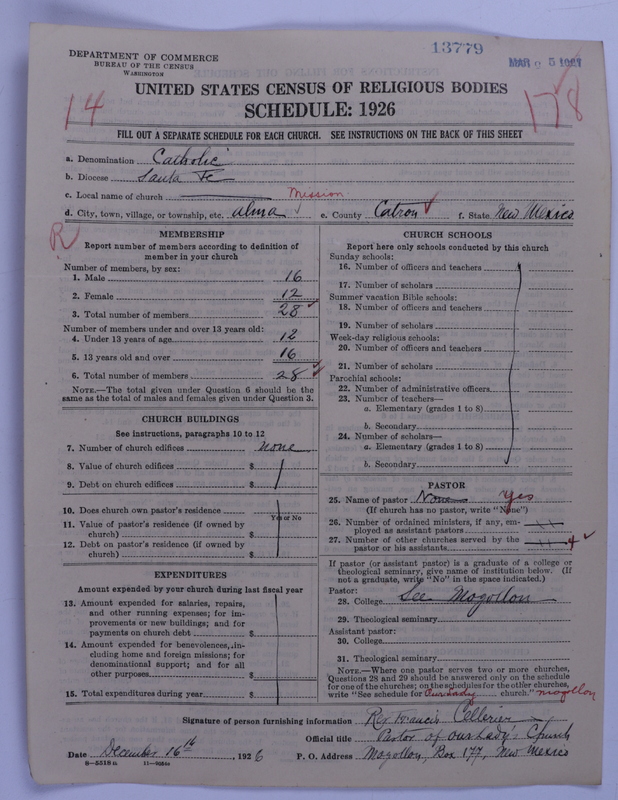 13779
MAR 25 1927
DEPARTMENT OF COMMERCE
BUREAU OF THE CENSUS
WASHINGTON
UNITED STATES CENSUS OF RELIGIOUS BODIES
SCHEDULE: 1926
14
178
FILL OUT A SEPARATE SCHEDULE FOR EACH CHURCH. SEE INSTRUCTIONS ON THE BACK OF THIS SHEET
a. Denomination Catholic
b. Diocese Santa Fe
c. Local name of church Mission
d. City, town, village, or township, etc. Alma e. County Catron f. State New Mexico
R
MEMBERSHIP
Report number of members according to definition of
member in your church
Number of members, by sex:
1. Male 16
2. Female 12
3. Total number of members 28
Number of members under and over 13 years old:
4. Under 13 years of age 12
5. 13 years old and over 16
6. Total number of members 28
NOTE.—The total given under Question 6 should be the
same as the total of males and females given under Question 3.
CHURCH BUILDINGS
See instructions, paragraphs 10 to 12
7. Number of church edifices none
8. Value of church edifices $
9. Debt on church edifices $
10. Does church own pastor's residence
Yes or No
11. Value of pastor's residence (if owned by
church) $
12. Debt on pastor's residence (if owned by
church) $
EXPENDITURES
Amount expended by your church during last fiscal year
13. Amount expended for salaries, repairs,
and other running expenses; for im-
provements or new buildings; and for
payments on church debt $
14. Amount expended for benevolences, in-
cluding home and foreign missions; for
denominational support; and for all
other purposes $
15. Total expenditures during year $
CHURCH SCHOOLS
Report here only schools conducted by this church
Sunday schools:
16. Number of officers and teachers
17. Number of scholars
Summer vacation Bible schools:
18. Number of officers and teachers
19. Number of scholars
Week-day religious schools:
20. Number of officers and teachers
21. Number of scholars
Parochial schools:
22. Number of administrative officers
23. Number of teachers—
a. Elementary (grades 1 to 8)
b. Secondary
24. Number of scholars—
a. Elementary (grades 1 to 8)
b. Secondary
PASTOR
25. Name of pastor None Yes
(If church has no pastor, write "None")
26. Number of ordained ministers, if any, em-
ployed as assistant pastors
27. Number of other churches served by the
pastor or his assistants 4
If pastor (or assistant pastor) is a graduate of a college or
theological seminary, give name of institution below. (If
not a graduate, write "No" in the space indicated.)
Pastor:
28. College See Mogollon
29. Theological seminary
Assistant pastor:
30. College
31. Theological seminary
NOTE.—Where one pastor serves two or more churches,
Questions 28 and 29 should be answered only on the schedule
for one of the churches; on the schedules for the other churches,
write "See schedule for Our Lady church." Mogollon
Signature of person furnishing information Rev Francis Cellerier
Official title Pastor of Our Lady's Church
Date December 16th, 1926 P. O. Address Mogollon, Box 177, New Mexico
8—5518 D.